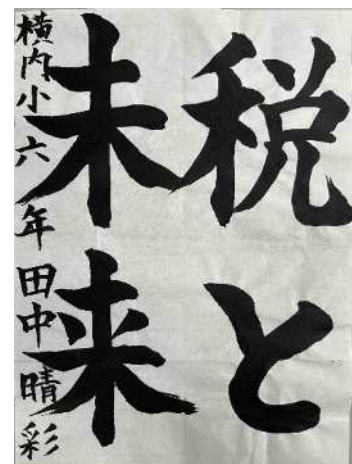 税と
未来
横内小六年田中晴彩